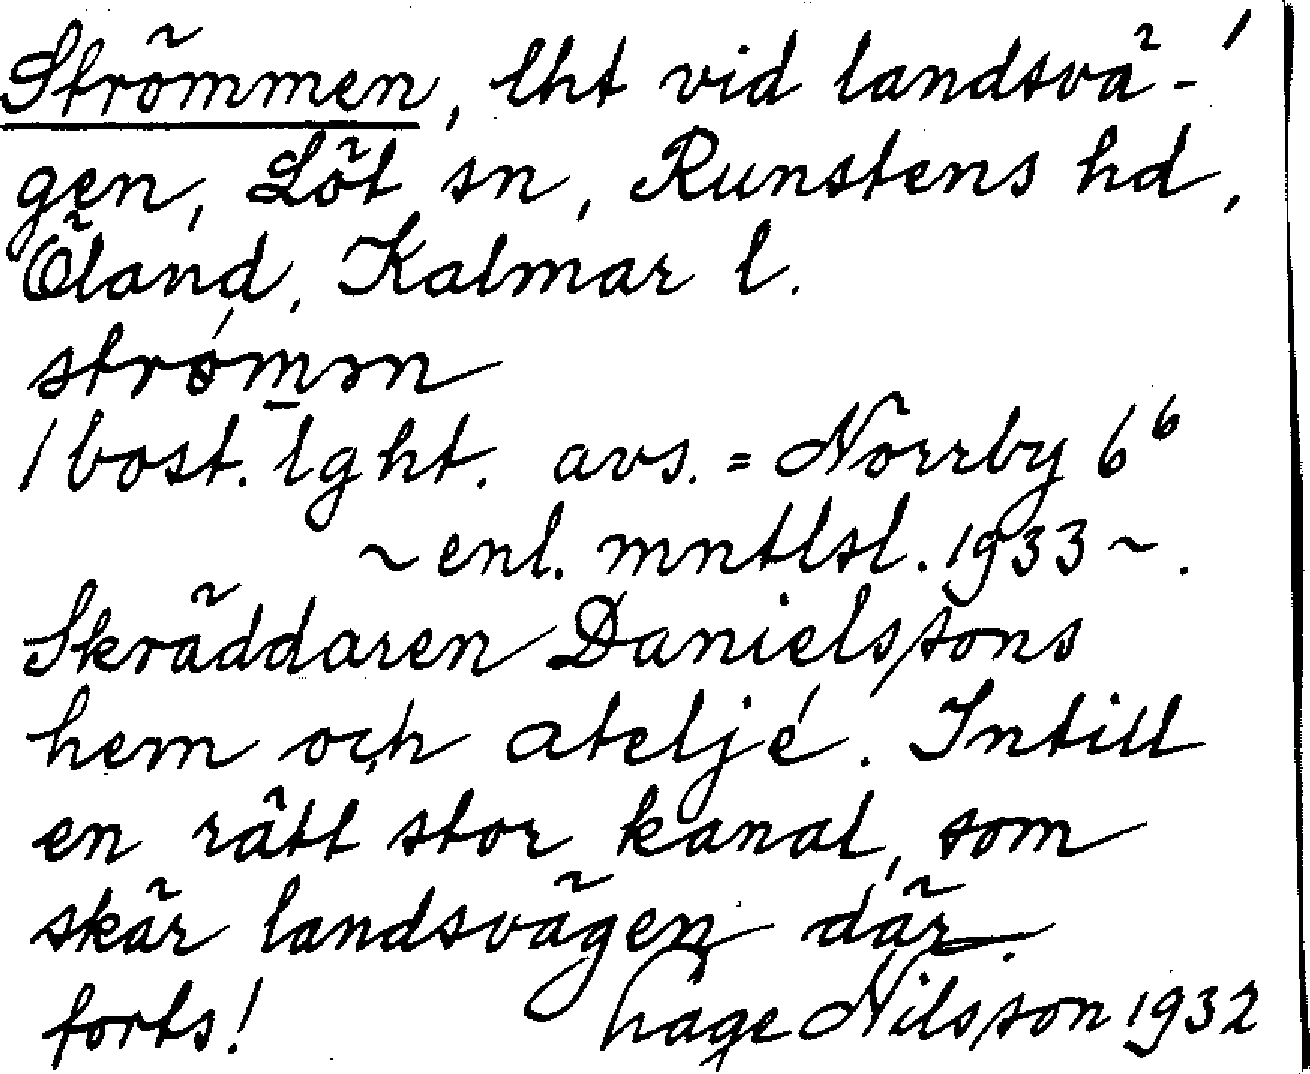 Strömmen, lht vid landsvä- 1
gen, Löt sn, Runstens hd,
Öland, Kalmar l.
strømən
1 bost. lght. avs. = Norrby 6⁶
~ enl. mntlsl. 1933 ~.
Skräddaren Danielssons
hem och ateljé. Intill
en rätt stor kanal, som
skär landsvägen där.
forts! Hage Nilsson 1932